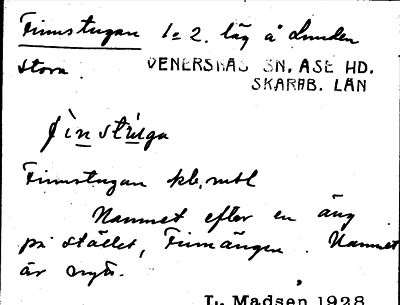 Finnstugan 1 o 2. läg å Lunden
Stora. VENERSNÄS SN, ÅSE HD.
SKARAB. LÄN
fìnstúga
Finnstugan kb, mtl
Namnet efter en äng
på stället, Finnängen. Namnet
är nytt.
L. Madsen 1928